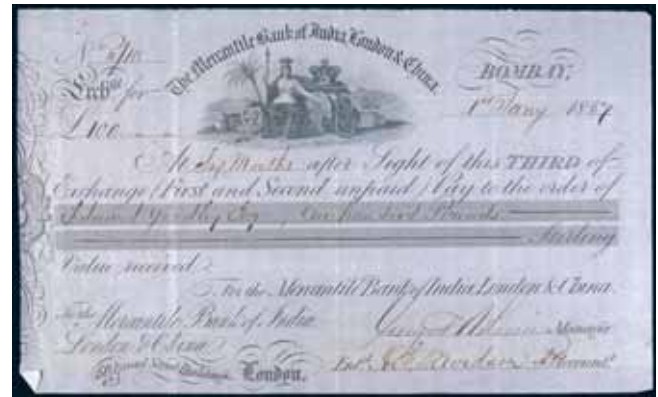 The Mercantile Bank of India, London & China.
BOMBAY,
Exch^ge for
£100
1857
At Six Months after Sight of this THIRD of
Exchange (First and Second unpaid) Pay to the order of
Esq. One hundred Pounds
Sterling
Value received.
For the Mercantile Bank of India, London & China.
To the Mercantile Bank of India
London & China
Manager
London.
Ent^d
Account^t